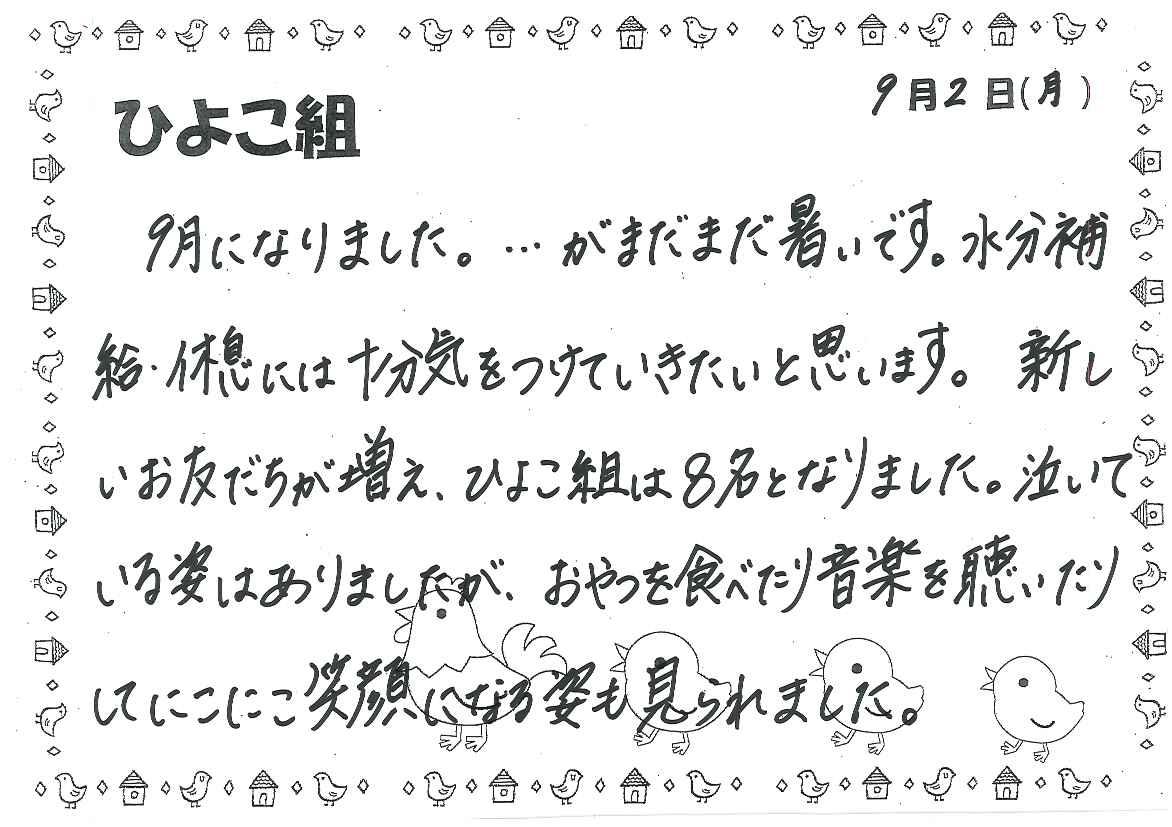 9月2日(月)
ひよこ組
9月になりました。…がまだまだ暑いです。水分補
給・休憩には十分気をつけていきたいと思います。新し
いお友だちが増え、ひよこ組は8名となりました。泣いて
いる姿はありましたが、おやつを食べたり音楽を聴いたり
してにこにこ笑顔になる姿も見られました。